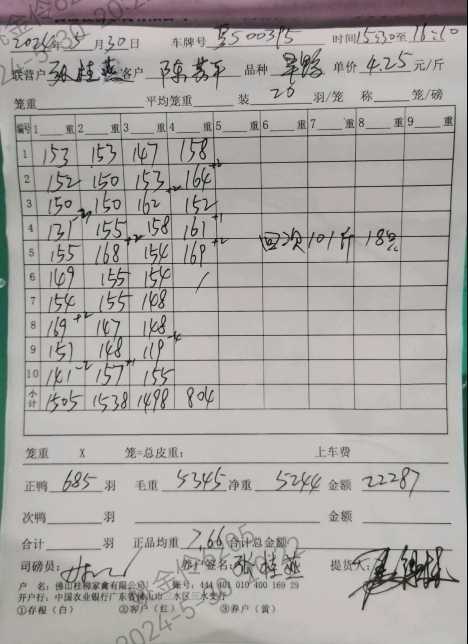 2024年5月30日 车牌号 粤S00395 时间15:30至16:10
联营户 张桂燕 客户 陈苏平 品种 旱鸭 单价 4.25 元/斤
笼重 平均笼重 装 20 羽/笼 称 笼/磅
编号 1 重 2 重 3 重 4 重 5 重 6 重 7 重 8 重 9 重
1 153 153 147 158
2 152 150 153 164 +1
3 150 150 162 +2 152
4 131 -3 155 158 161 +1
5 155 168 154 169 +2 回次101斤18只
6 149 155 154 /
7 154 155 148
8 169 +2 147 148
9 151 148 119 -4
10 141 -2 157 +1 155
小计 1505 1538 1498 804
笼重 X 笼=总皮重: 上车费
正鸭 685 羽 毛重 5345 净重 5244 金额 22287
次鸭 羽 金额
合计 羽 正品均重 7.66 合计总金额
司磅员: 养户签名: 张桂燕 提货人:
户 名:佛山桂柳家禽有限公司 账号:444 401 010 400 169 29
开户行:中国农业银行广东省佛山市三水区三水支行
①存根(白) ②客户(红) ③养户(黄)